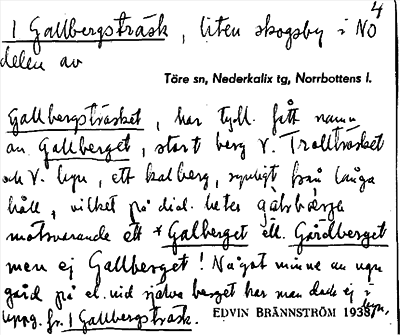 4
1 Gallbergsträsk, liten skogsby i NO
delen av
Töre sn, Nederkalix tg, Norrbottens l.
Gallbergsträsket, har tydl. fått namn
av Gallberget, stort berg V. Trollträsket
och V. byn, ett kalberg, synligt från långa
håll, vilket på dial. hetes
motsvarande ett *Galberget ell. Gårdberget
men ej Gallberget! Något minne av ngn
gård på el. vid själva berget har man dock ej i byn,
uppg. fr. 1 Gallbergsträsk. EDVIN BRÄNNSTRÖM 1938